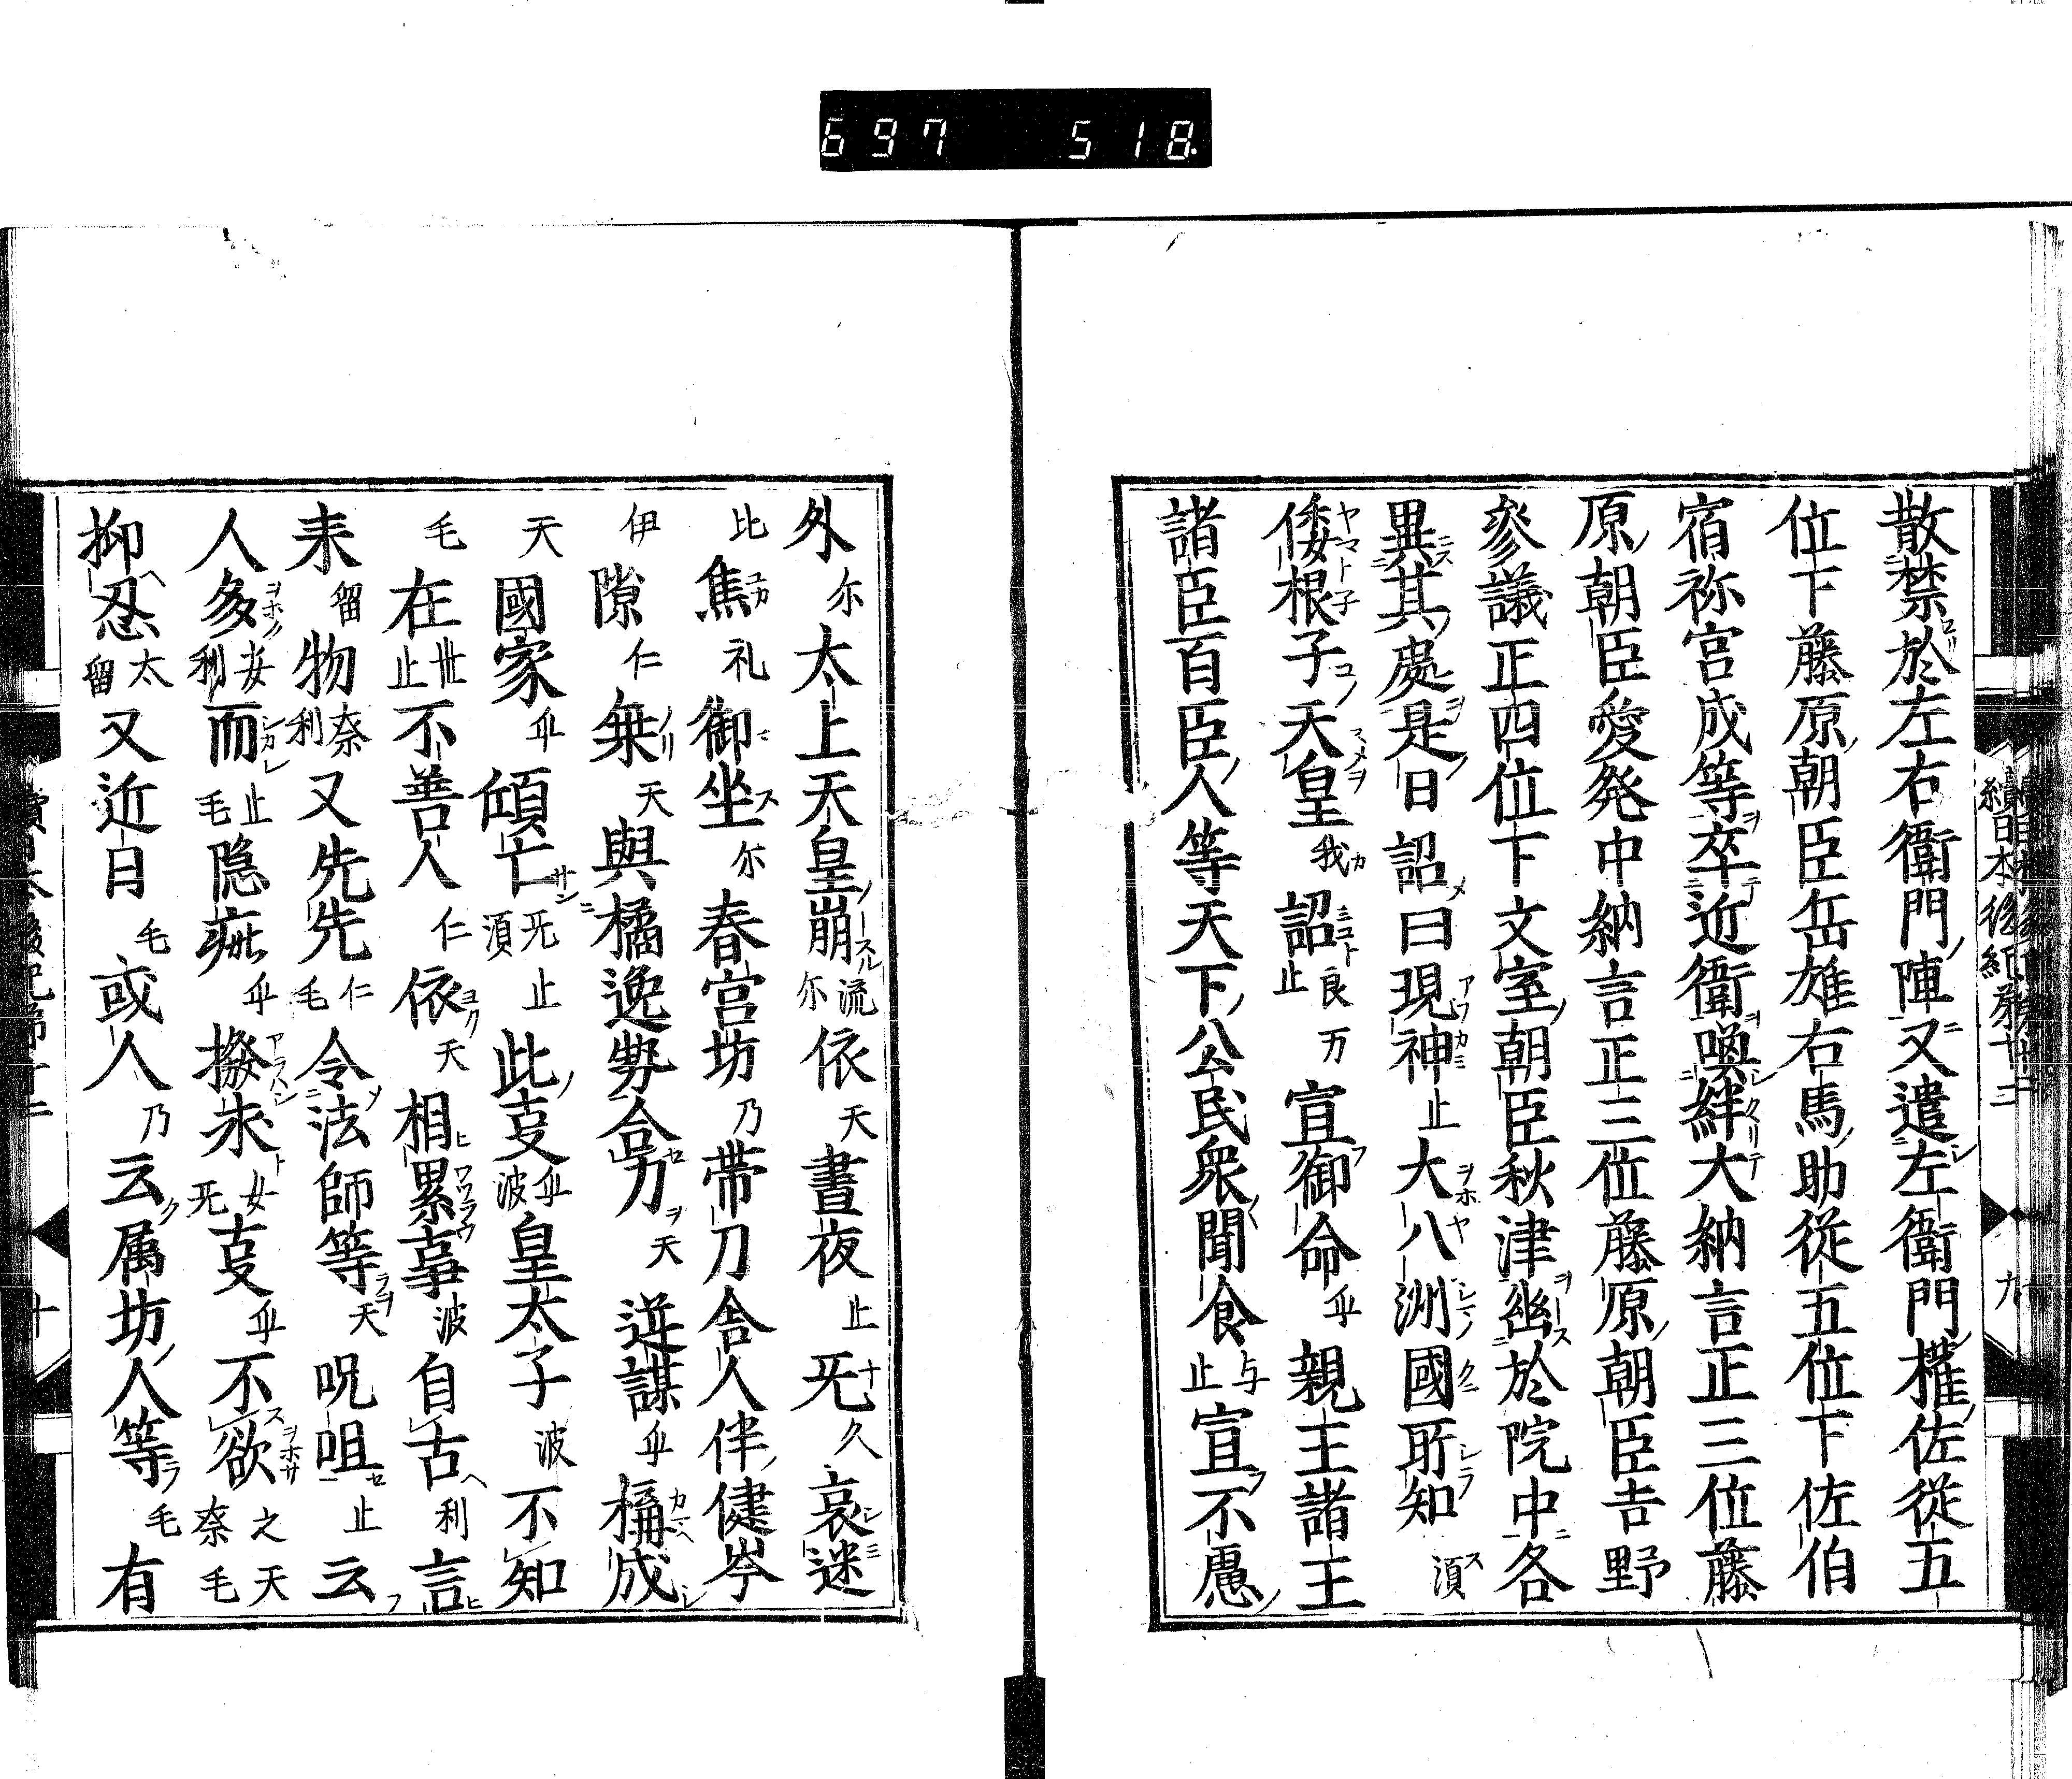 697 518
散禁於左右衛門陣又遣左衛門權佐從五
位下藤原朝臣岳雄右馬助従五位下佐伯
宿祢宮成等卒近衛喚絆大納言正三位藤
原朝臣愛発中納言正三位藤原朝臣吉野
參議正四位下文室朝臣秋津幽於院中各
異其處是日詔曰現神止大八洲國所知須
倭根子天皇我詔良万止宣御命乎親王諸王
諸臣百臣人等天下公民衆聞食与止宣不慮
外尓太上天皇崩流尓依天晝夜止无久哀迷
比焦礼御坐尓春宮坊乃帯刀舎人伴健岑
伊隙仁無天與橘逸勢合力天逆謀乎構成
天國家乎傾亡无止須此㕝乎波皇太子波不知
毛在世止不善人仁依天相累事波自古利言
来留物奈利又先先仁毛令法師等天呪咀止云
人多安利而止毛隠疵乎撥求女无㕝乎不欲之天奈毛
抑忍太留又近日毛或人乃云属坊人等毛有
續日本後紀第十二
九
十